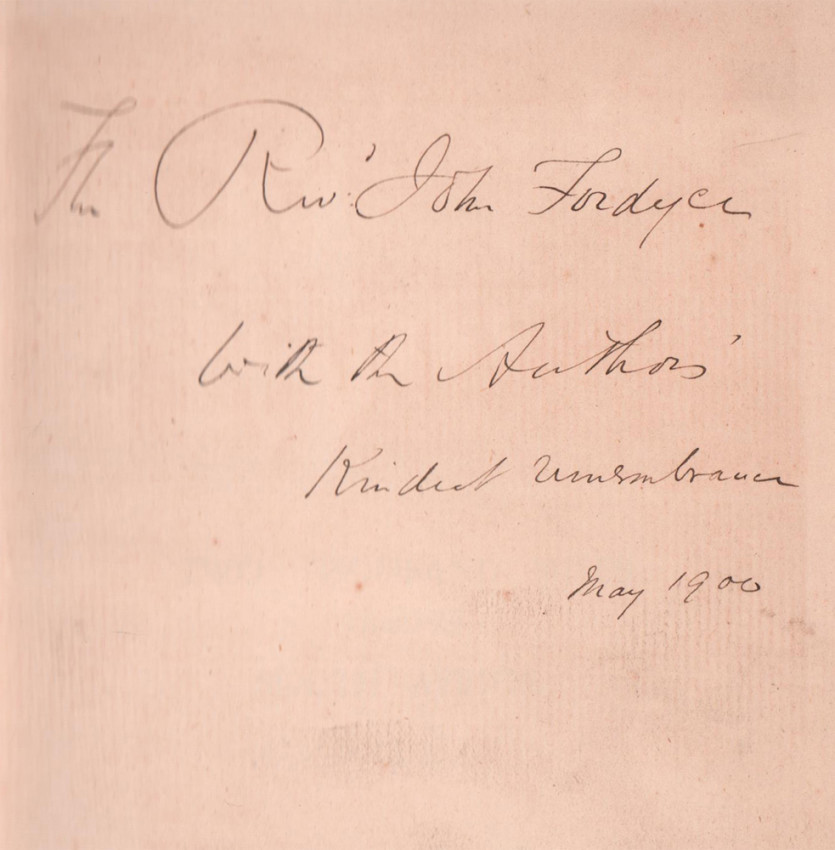 The Rev.' John Fordyce
With the Author's
Kindest remembrance
May 1900